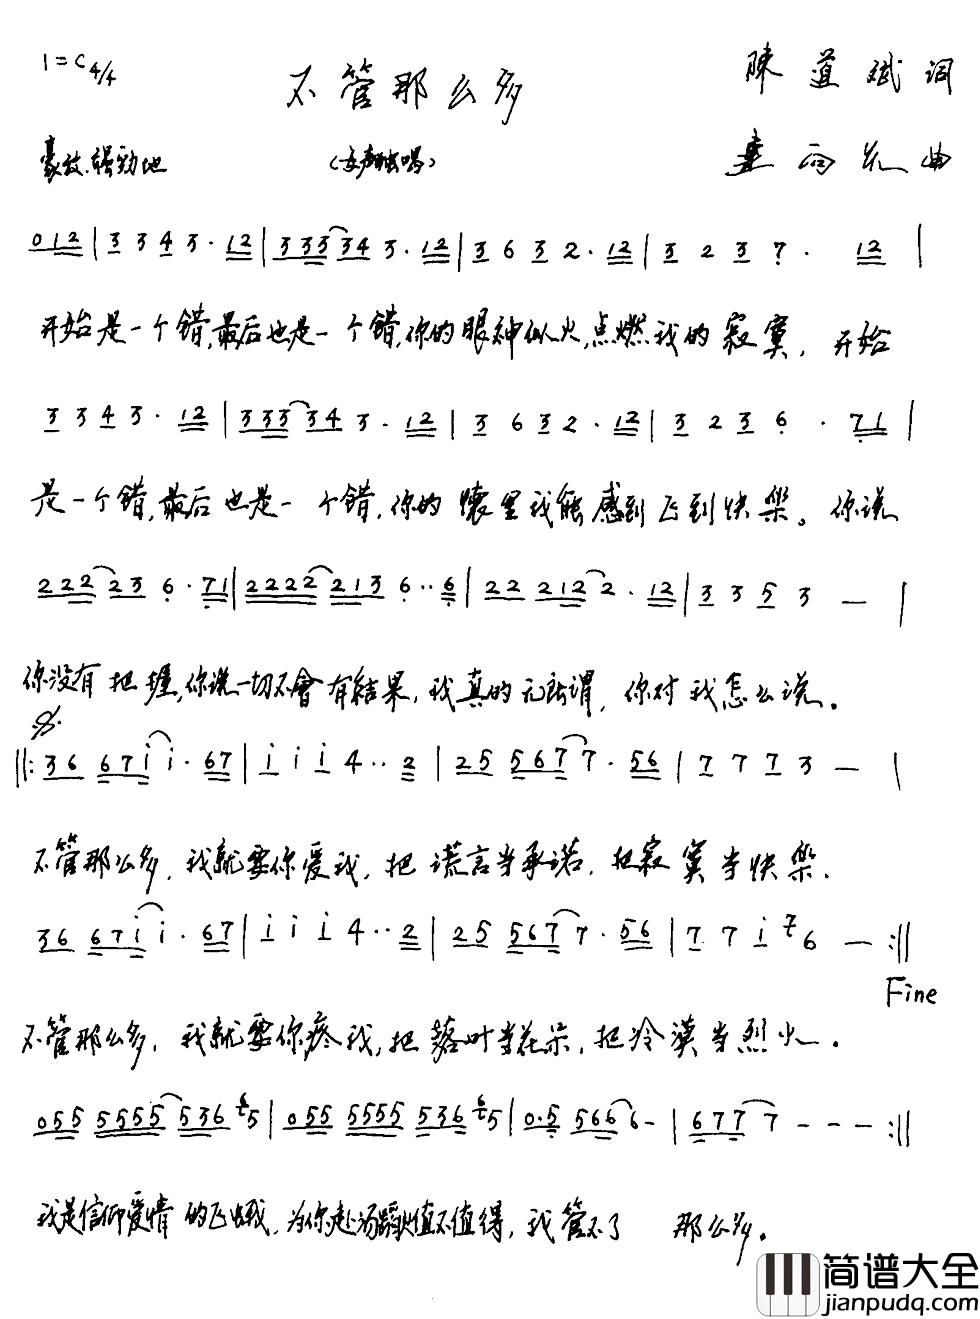 1=C 4/4
不管那么多
陳道斌词
豪放.强劲地
(女声独唱)
雨东曲
0 1 2 | 3 3 4 3 · 1 2 | 3 3 3 3 4 3 · 1 2 | 3 6 3 2 · 1 2 | 3 2 3 7 · 1 2 |
开始是一个错,最后也是一个错,你的眼神似火,点燃我的寂寞, 开始
3 3 4 3 · 1 2 | 3 3 3 3 4 3 · 1 2 | 3 6 3 2 · 1 2 | 3 2 3 6 · 7 1 |
是一个错,最后也是一个错,你的懷里我能感到飞到快樂。你说
2 2 2 2 3 6 · 7 1 | 2 2 2 2 2 1 3 6 ·· 6 | 2 2 2 1 2 2 · 1 2 | 3 3 5 3 — |
你没有把握,你说一切不會有结果,我真的无所谓,你对我怎么说。
||: 3 6 6 7 i i · 6 7 | i i i 4 ·· 2 | 2 5 5 6 7 7 · 5 6 | 7 7 7 3 — |
不管那么多,我就要你爱我,把谎言当承诺,把寂寞当快樂.
3 6 6 7 i i · 6 7 | i i i 4 ·· 2 | 2 5 5 6 7 7 · 5 6 | 7 7 i 7 6 — :||
Fine
不管那么多,我就要你疼我,把落叶当花朵,把冷漠当烈火.
0 5 5 5 5 5 5 5 3 6 6 5 | 0 5 5 5 5 5 5 5 3 6 6 5 | 0 · 5 5 6 6 6 - | 6 7 7 7 - - - :||
我是信仰爱情的飞蛾,为你赴汤蹈火值不值得,我管不了 那么多。
简谱大全
jianpudq.com